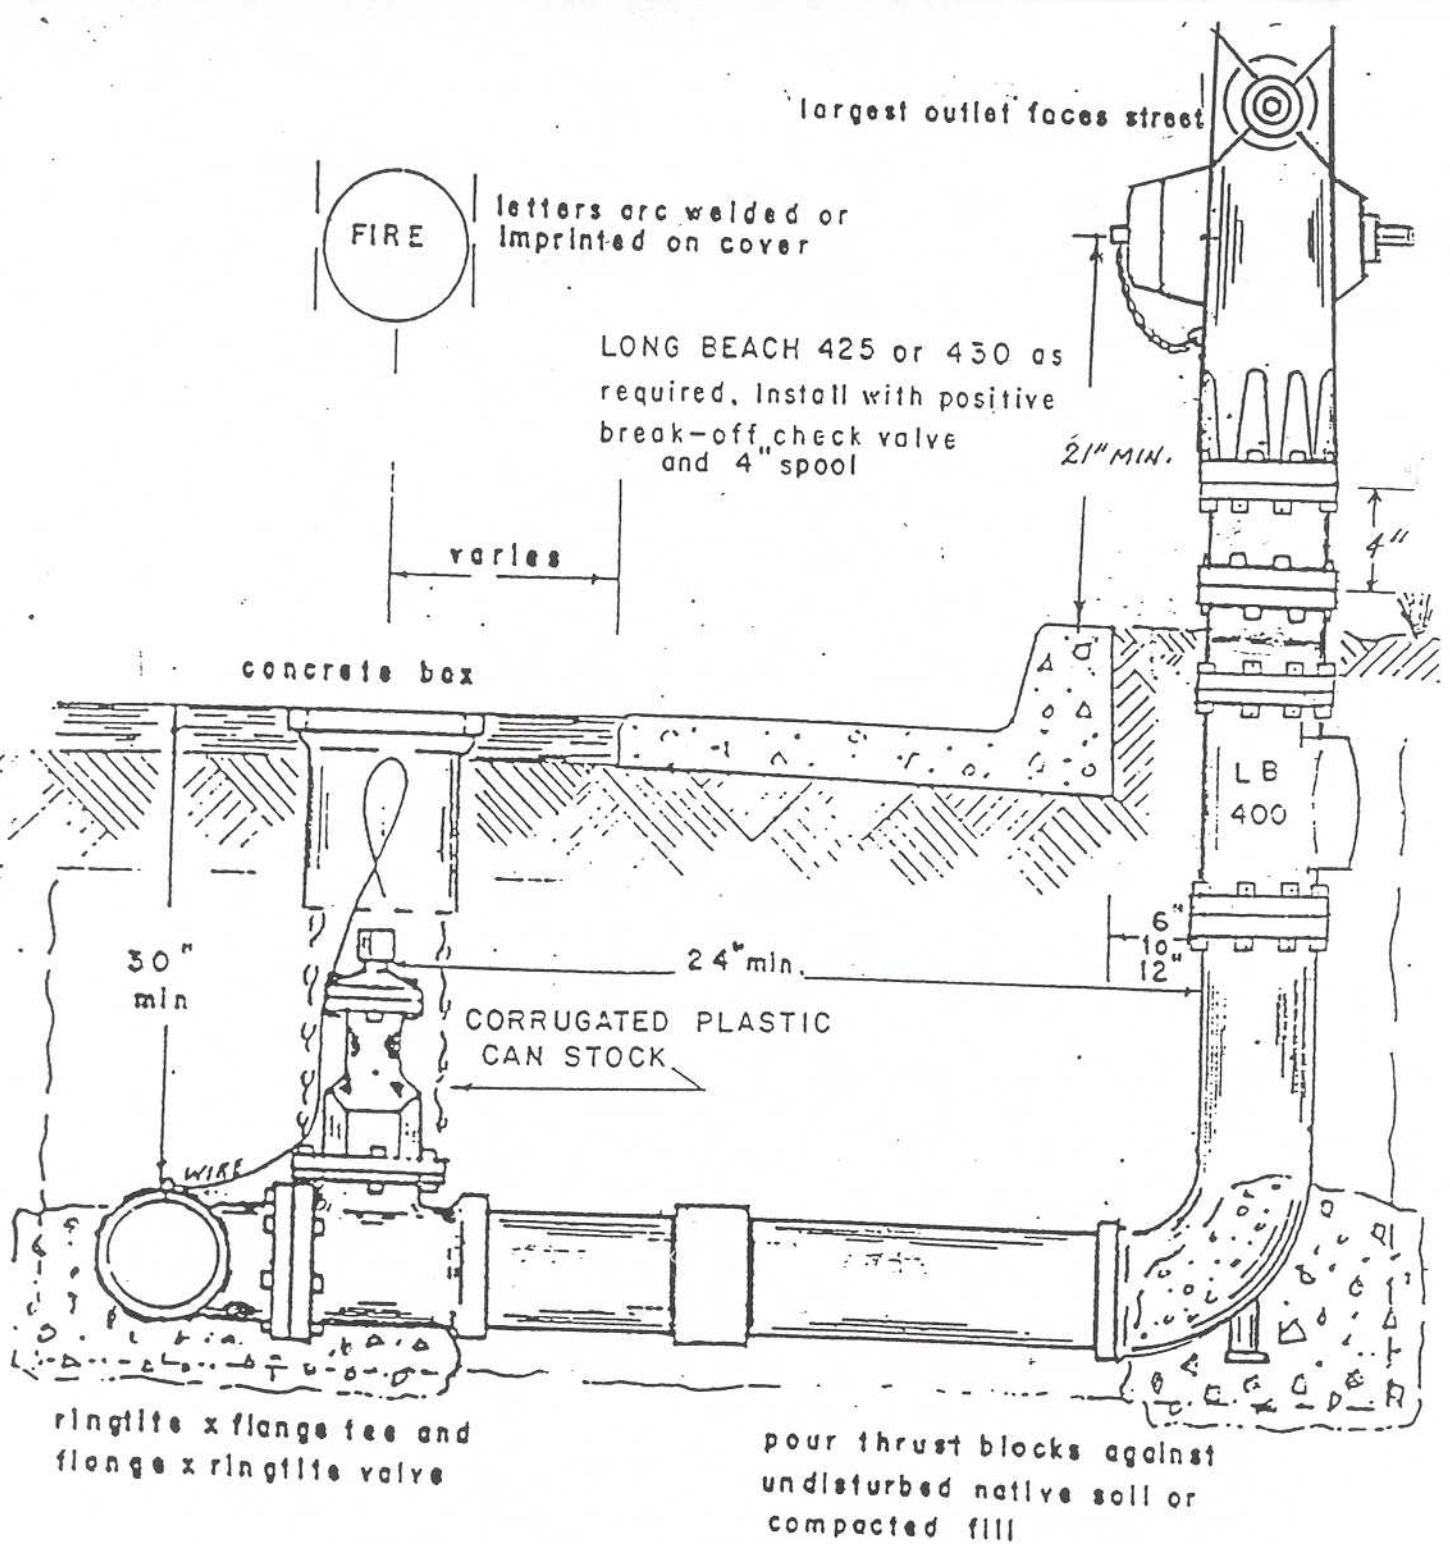 largest outlet faces street
FIRE
letters arc welded or
imprinted on cover
LONG BEACH 425 or 430 as
required. Install with positive
break-off check valve
and 4" spool
21" MIN.
4"
varies
concrete box
LB
400
6"
10
12"
30"
min
24" min.
CORRUGATED PLASTIC
CAN STOCK
WIRE
ringtite x flange tee and
flange x ringtite valve
pour thrust blocks against
undisturbed native soil or
compacted fill